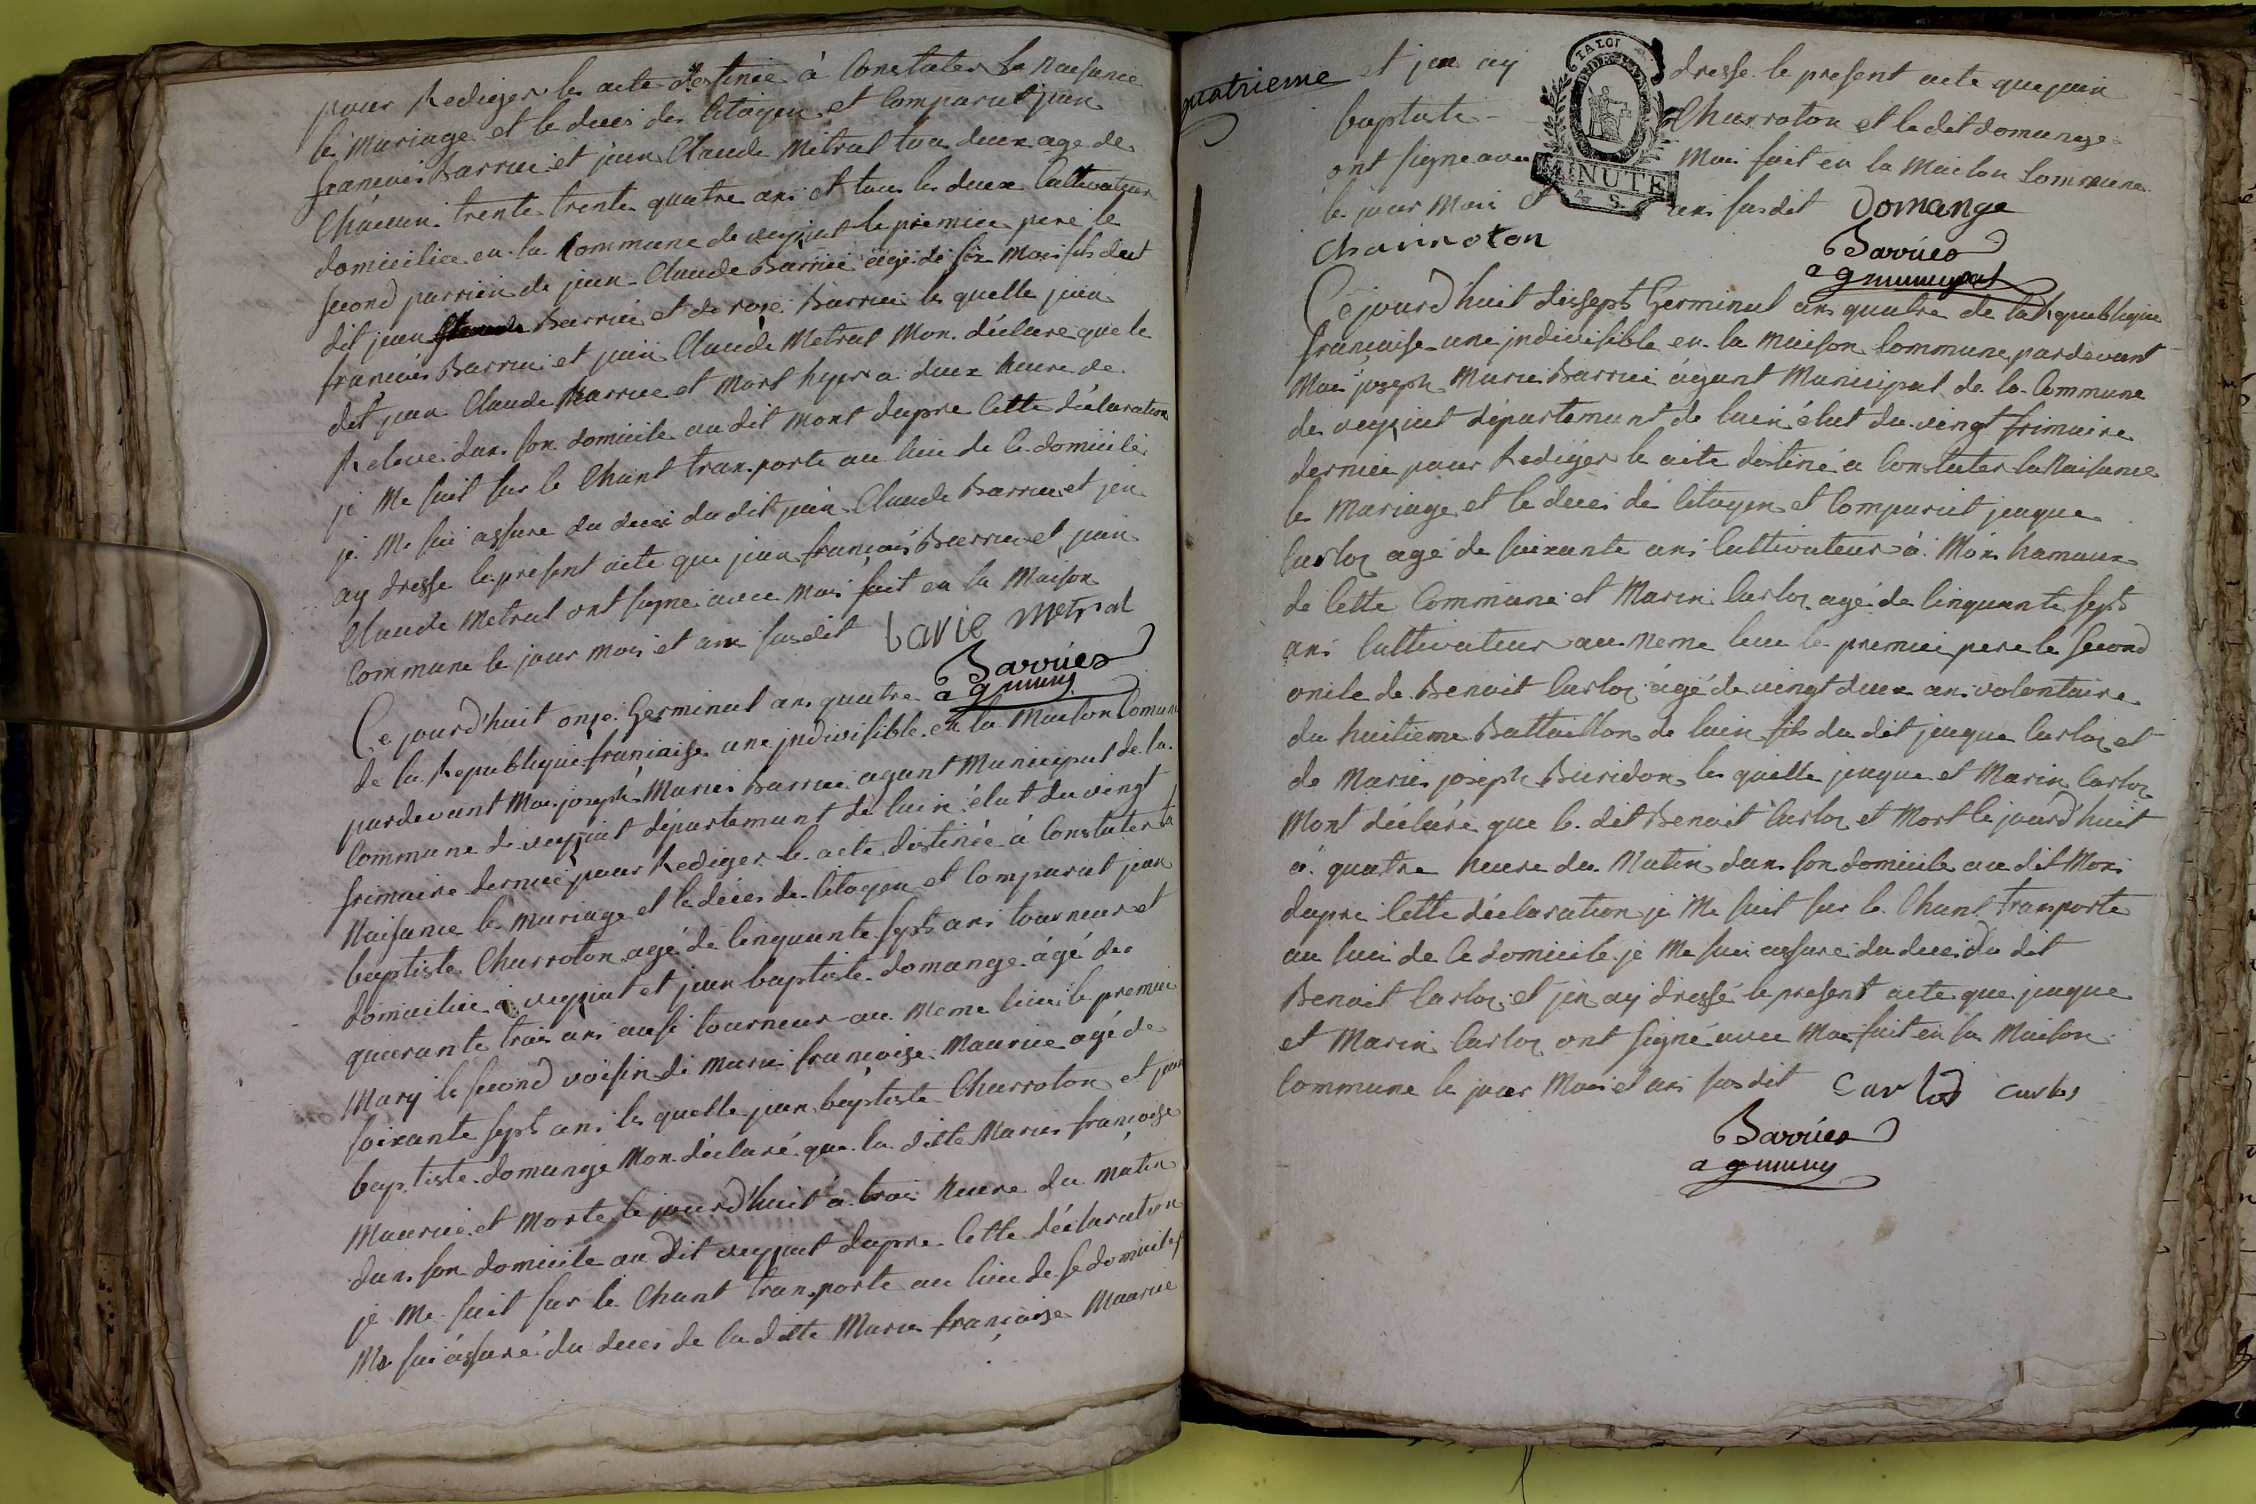 pour Rediger les acte destinée à Constater La Naisance
le Mariage et le deces des Citoyen et Comparut jean
francois Barrui et jean Claude Metrat tou deux age de
Chacun trente trente quatre ans et tous les deux Cultivateur
domicilice en la Commune de veyziat le premier pere le
second parrien de jean Claude Barrui agé de six Mois fils dud
dit jean Barrui et de rose Barrui les quelle jean
francois Barrui et jean Claude Metrat Mon déclare que le
dit jean Claude Barrue et Mort hyer a deux heure de
Relevé dans son domicile au dit Mont dapre Cette déclaration
je Me suit sur le Chant transporte au lieu de le domicile
je Me sui assure du deces du dit jean Claude Barrui et jen
ay dresse le present acte que jean francois Barrui et jean
Claude Metrat ont signe avec Moi fait en la Maison
Commune le jour Mois et ans susdit barie metrat
Barrües
ag muny
Ce jourd'huit onze Germinal ans quatre
de la Republique française une jndivisible en la Maison Comune
pardevant Moi joseph Maries Barrui agant Municipat de la
Commune de veyziat département de lain élut du vingt
frimaire dernier pour Rediger le acte destinée à Constater la
Naisance le Mariage et le deces des Citoyen et Comparut jean
baptiste Charroton agé de Cinquante sept ans tourneur et
domicilie à veyziat et jean baptiste domange ágé de
quarante trois ans ausi tourneur au Meme lieu le premier
Mary le second voisin de Marie françoise Maurice agé de
soixante sept ans les quelle jean baptiste Charroton et jean
baptiste domange Mon déclaré que la ditte Maries françoise
Maurice et Morte le jourd'huit à trois heure du Matin
dans son domicile au dit veyziat dapre Cette déclaration
je Me suit sur le Chant transporte au lieu de se domicile
Me sui assuré du deces de la ditte Marie françoise Maurice
quatrieme
et jen ay dresse le present acte que jean
baptiste Charroton et le dit domange
ont signe avec Moi fait en la Maison Commune
le jour Mois et ans susdit Domange
charroton
Barrües
ag municipat
LA LOI
MINUTE
4 S.
Ce jourd'huit dissept Germinal ans quatre de la Republique
française une jndivisible en la Maison Commune pardevant
Moi joseph Marie Barrui ágant Municipat de la Commune
de veyziat département de lain élut du vingt frimaire
dernier pour Rediger le acte destiné a Constater la Naisance
le Mariage et le deces de Citoyen et Comparut jaque
Carloz agé de soixante ans Cultivateur à Mons hamaux
de Cette Commune et Marin Carloz agé de Cinquante sept
ans Cultivateur au Meme lieu le premier pere le Second
oncle de Benoit Carloz ágé de vingt deux ans volontaire
du huitieme Battaillon de lain fils du dit jaque Carloz et
de Maries joseph Buridon les quelle jaque et Marin Carloz
Mont déclaré que le dit Benoit Carloz et Mort le jourd'huit
à quatre heure du Matin dans son domicile au dit Mons
dapre Cette déclaration je Me suit sur le Chant transporte
au lieu de le domicile je Me sui assure du deces du dit
Benoit Carloz et jen ay dressé le present acte que jaque
et Marin Carloz ont signé avec Moi fait en la Maison
Commune le jour Mois et ans susdit Carloz carlos
Barrües
ag muny